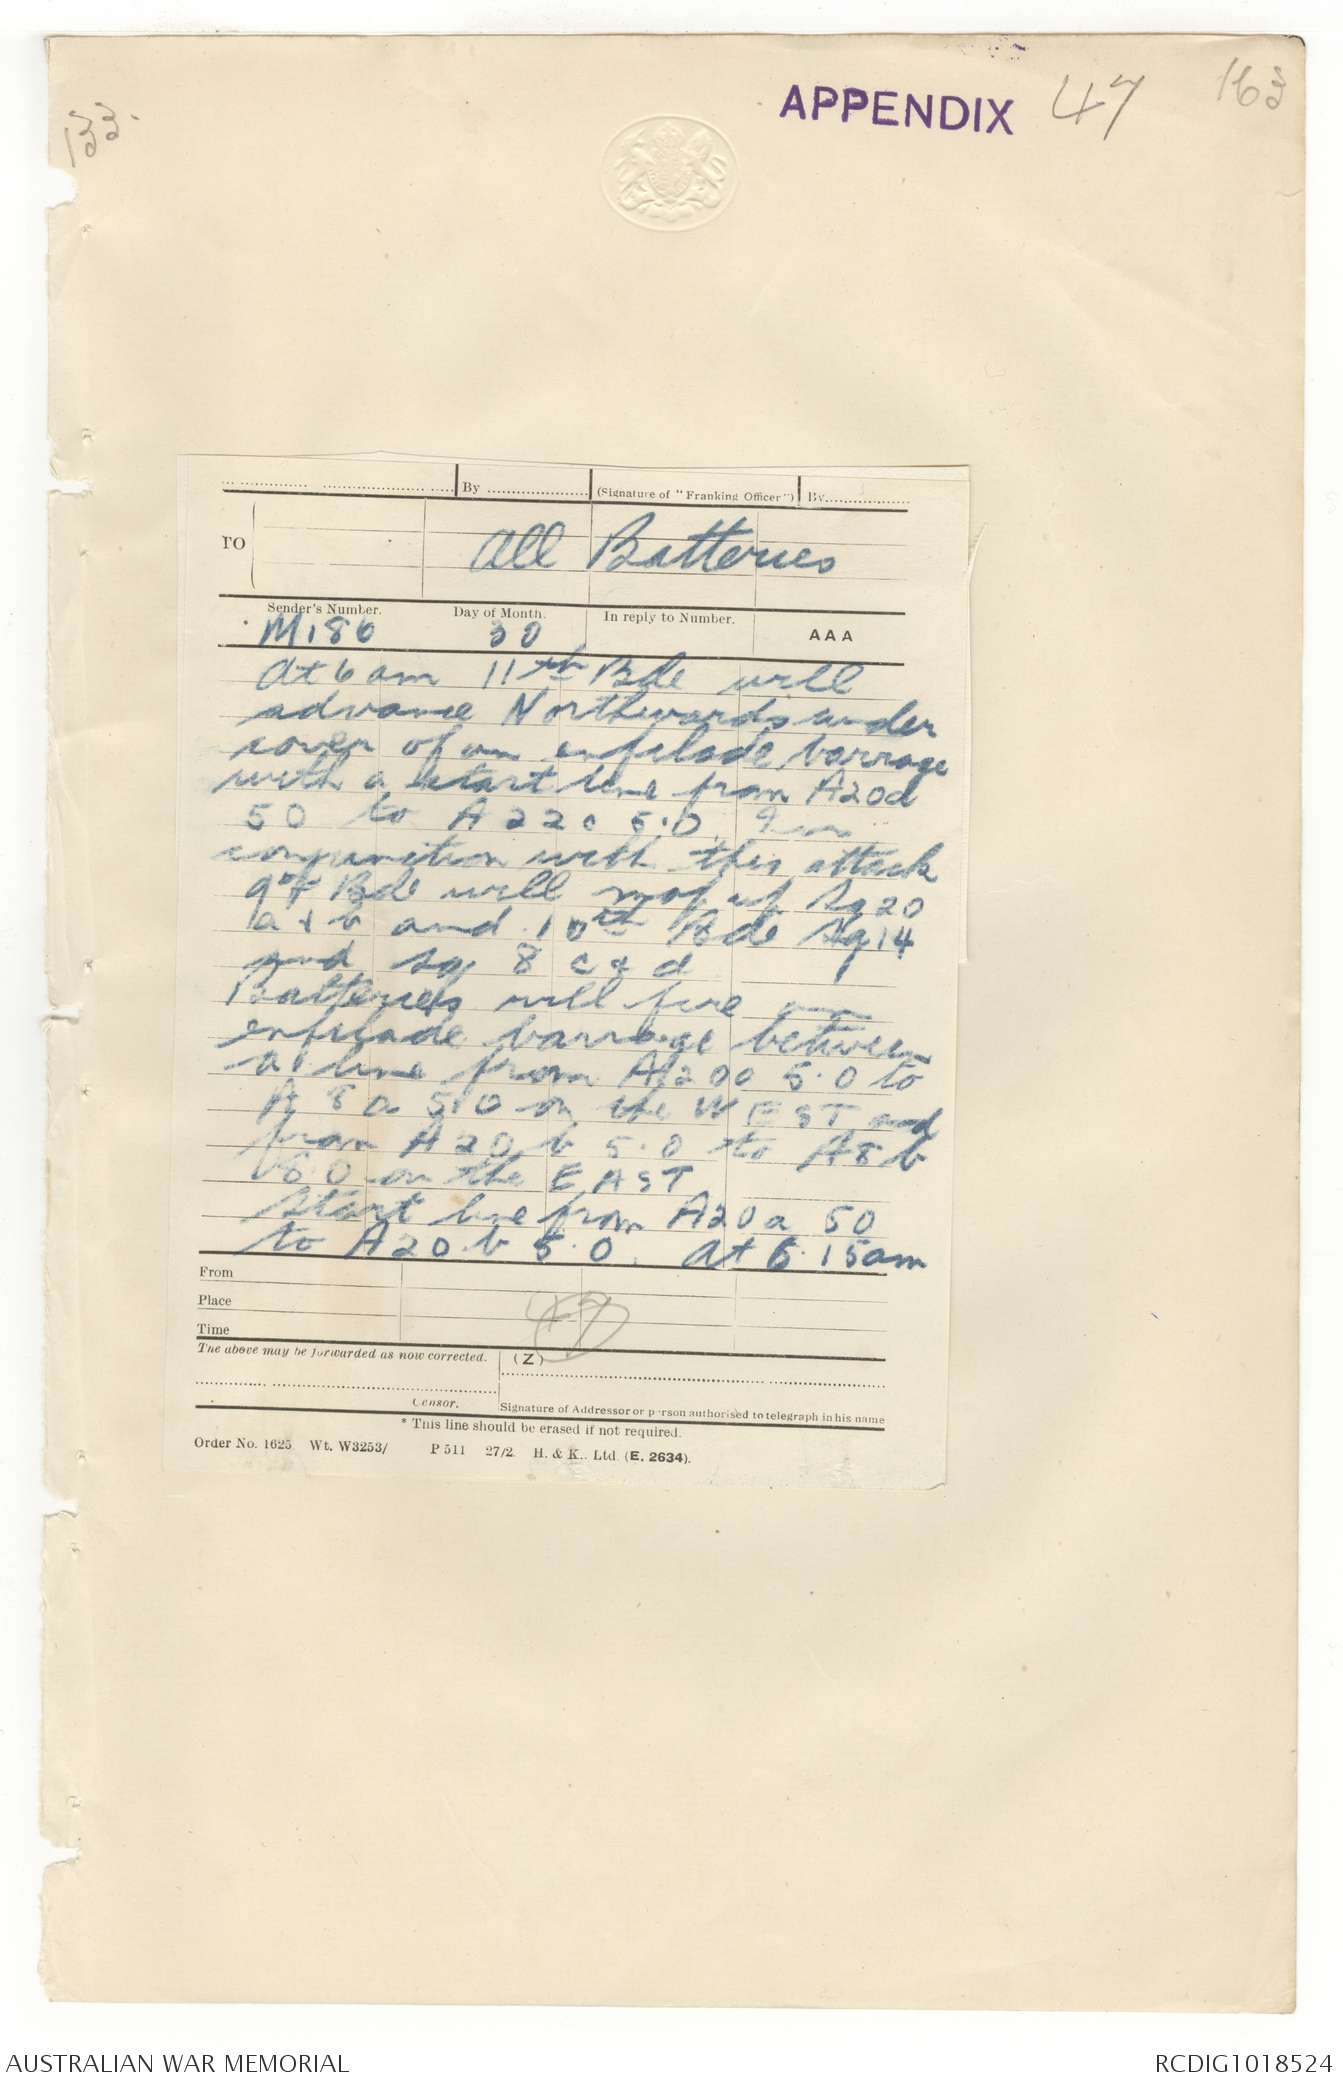 133.
APPENDIX 47
163
By
(Signature of "Franking Officer") By
TO
All Batteries
Sender's Number.
Day of Month.
In reply to Number.
AAA
M186
30
At 6 am 11th Bde will
advance Northwards under
cover of an enfilade barrage
with a start line from A20d
50 to A 22c 5.0. In
conjunction with this attack
9th Bde will mop up Sq 20
a & b and 10th Bde Sq 14
and sq 8 c & d
Batteries will fire an
enfilade barrage between
a line from A20a 5.0 to
A 8 a 5.0 on the WEST and
from A 20 b 5.0 to A8b
5.0 on the EAST
Start line from A20a 50
to A20.b 5.0. At 6.15am
From
Place
Time
47
The above may be forwarded as now corrected.
(Z)
Censor.
Signature of Addressor or person authorised to telegraph in his name
* This line should be erased if not required.
Order No. 1625. Wt. W3253/ P 511 27/2. H. & K., Ltd. (E. 2634).
AUSTRALIAN WAR MEMORIAL
RCDIG1018524